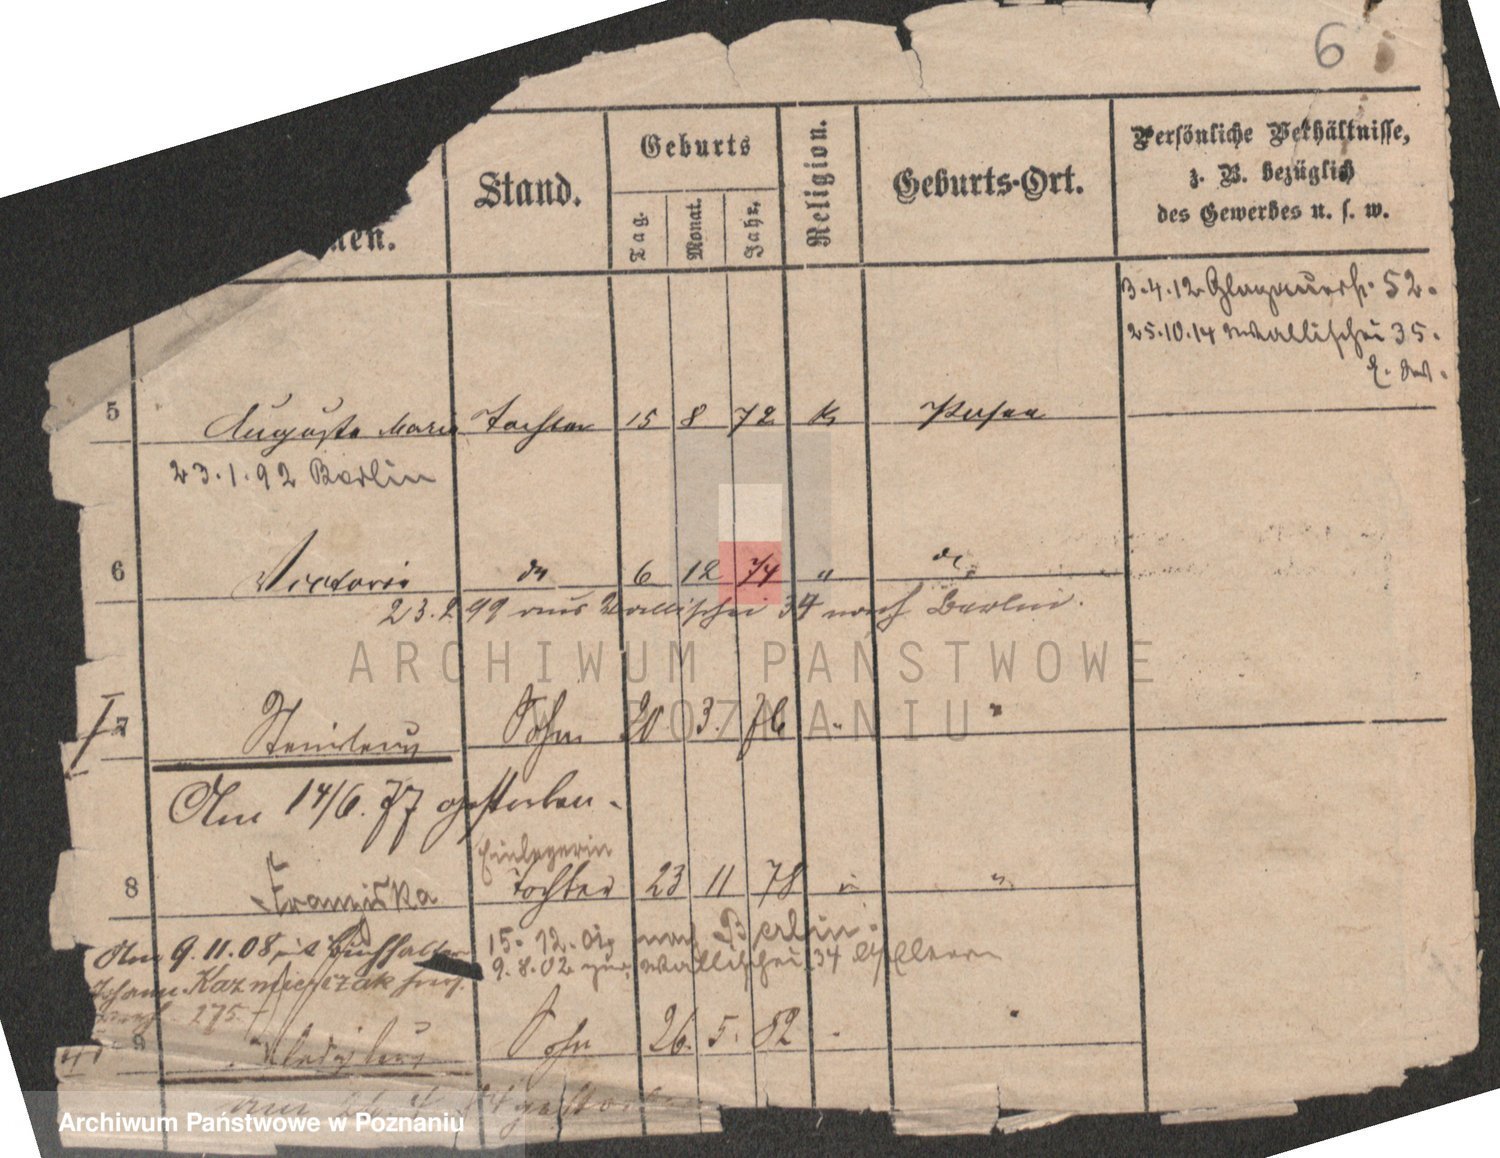 6
Geburts
Religion.
Persönliche Verhältnisse,
z. B. bezüglich
des Gewerbes u. s. w.
Stand.
Geburts-Ort.
Tag.
Monat.
Jahr.
men.
3.4.12 Glogauerstr. 52.
25.10.14 Wallischei 35.
5 Auguste Marie Tochter 15 8 72 k Posen
23.1.92 Berlin
6 Victoria do 6 12 74 " do
23.2.92 aus Wallischei 34 nach Berlin.
7 Stanislaus Sohn 20 3. 76 " "
Am 14/6. 77 gestorben.
Einlegerin
8 Franziska Tochter 23 11 78 " "
Am 9.11.08 mit Buchhalter
15. 12. 01 nach Berlin.
9.8.02 zur. Wallischei 34 Eltern
Johann Kazmierczak
275
9 Sohn 26. 5. 82
gestorben
ARCHIWUM PAŃSTWOWE
POZNANIU
Archiwum Państwowe w Poznaniu